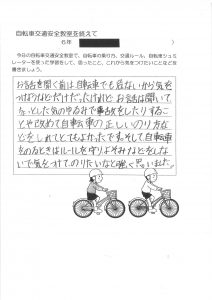 自転車交通安全教室を終えて
6年
今日の自転車交通安全教室で、自転車の乗り方、交通ルール、自転車シュミ
レーターを使った学習をして、思ったこと、これから気をつけたいことなどを
書きましょう。
お話を聞く前は自転車でも危ないから気を
つけなければとだけだったけれど、お話を聞いて、
ちょっとした気のゆるみで事故をしたりするこ
とや改めて自転車の正しいのり方な
どをしれてとてもよかったです。そして自転車
をのるときはルールを守り、よそみなどをしな
いで気をつけてのりたいなと強く思いました。